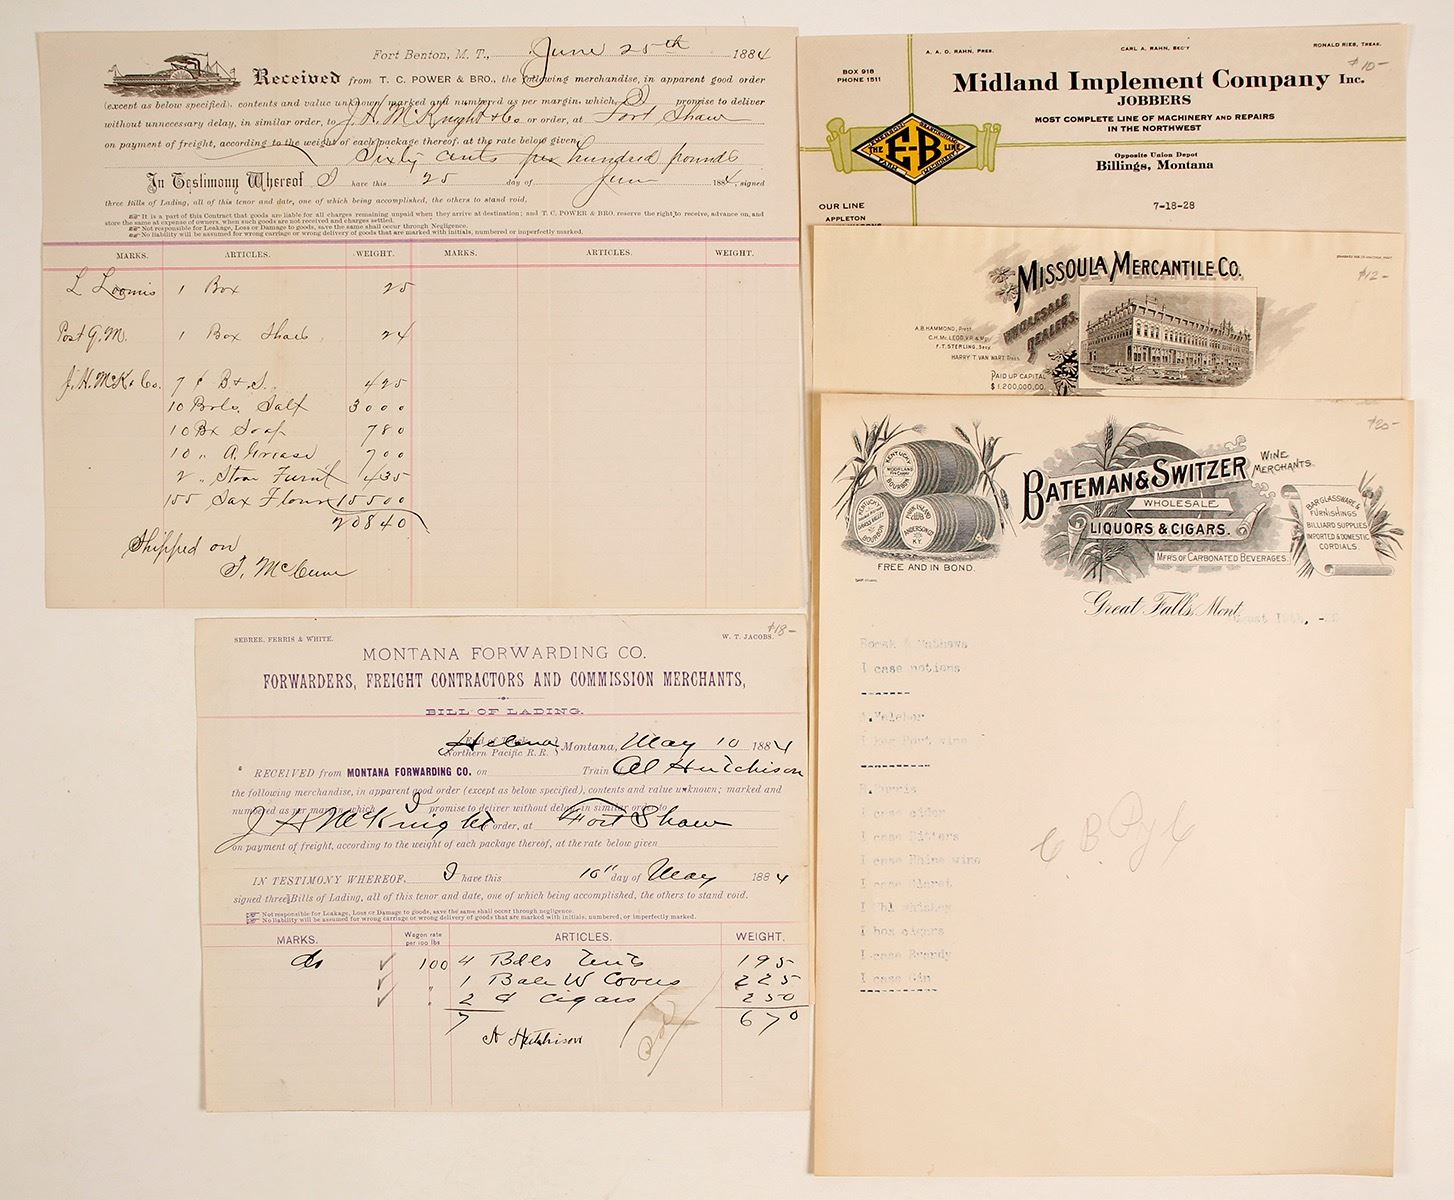 Fort Benton, M. T., June 25th 1884
Received from T. C. POWER & BRO., the following merchandise, in apparent good order
(except as below specified), contents and value unknown, marked and numbered as per margin, which I promise to deliver
without unnecessary delay, in similar order, to J. H. McKnight & Co or order, at Fort Shaw
on payment of freight, according to the weight of each package thereof, at the rate below given
Sixty cents per hundred pounds
In Testimony Whereof I have this 25 day of June 1884, signed
three Bills of Lading, all of this tenor and date, one of which being accomplished, the others to stand void.
It is a part of this Contract that goods are liable for all charges remaining unpaid when they arrive at destination; and T. C. POWER & BRO. reserve the right to receive, advance on, and
store the same at expense of owners, when such goods are not received and charges settled.
Not responsible for Leakage, Loss or Damage to goods, save the same shall occur through Negligence.
No liability will be assumed for wrong carriage or wrong delivery of goods that are marked with initials, numbered or imperfectly marked.
MARKS. ARTICLES. WEIGHT. MARKS. ARTICLES. WEIGHT.
L Loomis 1 Box 25
Post Q.M. 1 Box 24
J. H. McK & Co. 7 425
10 Salt 3000
10 Bx Soap 780
10 " A. Grease 700
2 " Furnt 435
155 Sax Flour 15500
20840
Shipped on
SEBREE, FERRIS & WHITE. W. T. JACOBS. $18-
MONTANA FORWARDING CO.
FORWARDERS, FREIGHT CONTRACTORS AND COMMISSION MERCHANTS,
BILL OF LADING.
Helena
Northern Pacific R. R. Montana, May 10 1884
RECEIVED from MONTANA FORWARDING CO. on Train Al Hutchison
the following merchandise, in apparent good order (except as below specified), contents and value unknown; marked and
numbered as per margin, which I promise to deliver without delay, in similar order to
J H McKnight order, at Fort Shaw
on payment of freight, according to the weight of each package thereof, at the rate below given
IN TESTIMONY WHEREOF, I have this 10" day of May 1884
signed three Bills of Lading, all of this tenor and date, one of which being accomplished, the others to stand void.
Not responsible for Leakage, Loss or Damage to goods, save the same shall occur through negligence.
No liability will be assumed for wrong carriage or wrong delivery of goods that are marked with initials, numbered, or imperfectly marked.
MARKS. Wagon rate per 100 lbs ARTICLES. WEIGHT.
do 100 4 Bdls Tents 195
" 1 Bale W Covers 225
" 2 Cigars 250
7 670
A Hutchison
A. A. O. RAHN, PRES. CARL A. RAHN, SEC'Y RONALD RIES, TREAS.
$10-
BOX 918
PHONE 1511
Midland Implement Company Inc.
JOBBERS
MOST COMPLETE LINE OF MACHINERY AND REPAIRS
IN THE NORTHWEST
THE E-B LINE
Opposite Union Depot
Billings, Montana
OUR LINE
APPLETON
7-18-28
MISSOULA MERCANTILE CO.
$12-
WHOLESALE
DEALERS.
A.B. HAMMOND, Prest.
C.H. McLEOD, V.P. & Mgr.
F.T. STERLING, Secy.
HARRY T. VAN WART, Treas.
PAID UP CAPITAL
$1,200,000.00.
$20-
KENTUCKY
WOODLAND
BOURBON
KENTUCKY
GRASS VALLEY
BOURBON
ANDERSON CO.
KY.
FREE AND IN BOND.
BATEMAN & SWITZER WINE MERCHANTS.
WHOLESALE
LIQUORS & CIGARS.
MFRS OF CARBONATED BEVERAGES.
BAR GLASSWARE &
FURNISHINGS
BILLIARD SUPPLIES
IMPORTED & DOMESTIC
CORDIALS.
Great Falls, Mont.
I case notions
I case cider
I case Bitters
I case Rhine wine
I case Claret
I Bbl whiskey
I box cigars
I case Brandy
I case Gin